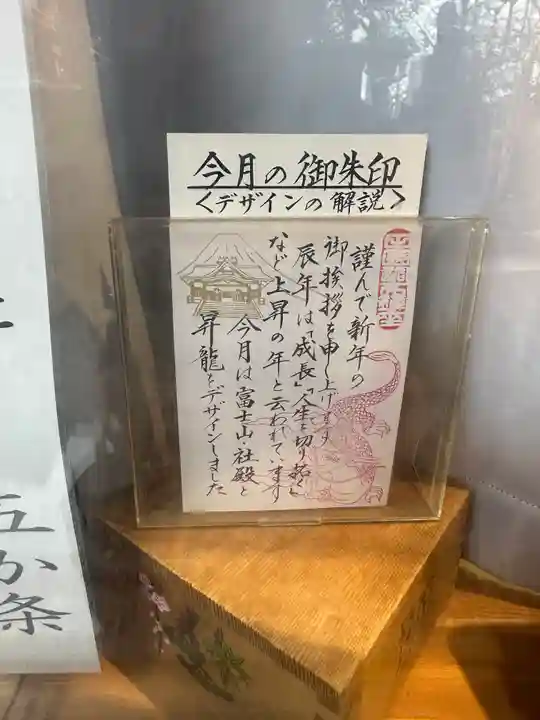 今月の御朱印
<デザインの解説>
謹んで新年の
御挨拶を申し上げます
辰年は「成長」「人生を切り拓く」
など上昇の年と云われています
今月は富士山・社殿と
昇龍をデザインしました
五か条